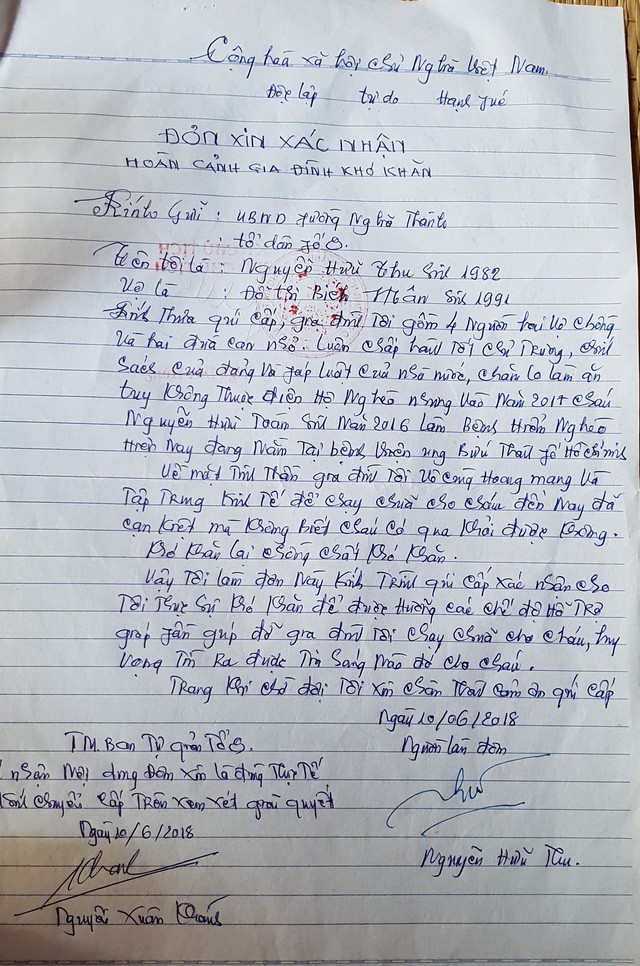 Cộng hoà xã hội chủ Nghĩa Việt Nam
Độc lập tự do Hạnh fúc
ĐƠN XIN XÁC NHẬN
HOÀN CẢNH GIA ĐÌNH KHÓ KHĂN
Kính Gửi : UBND fường Nghĩa Thành
: tổ dân fố 8.
Tên tôi là : Nguyễn Hữu Thu Sinh 1982
Vợ là : Đỗ Thị Bích Nhân Sinh 1991
Kính Thưa quí cấp, gia đình Tôi gồm 4 Người hai Vợ chồng
Và hai đứa con nhỏ. Luôn chấp hành Tốt chủ Trương, chính
Sách của đảng Và fáp luật của nhà nước, chăm lo làm ăn
tuy Không Thuộc diện Hộ Nghèo nhưng Vào Năm 2017 cháu
Nguyễn Hữu Toàn Sinh Năm 2016 lâm Bệnh Hiểm Nghèo
Hiện Nay đang Nằm Tại bệnh Viện ung Bứu Thành fố Hồ chí minh
Về mặt Tinh Thần gia đình Tôi Vô cùng Hoang mang Và
Tập Trung Kinh Tế để chạy chữa cho cháu đến Nay đã
cạn Kiệt mà Không Biết cháu có qua Khỏi được Không.
Khó Khăn lại chồng chất Khó Khăn.
Vậy Tôi làm đơn Này Kính Trình quí cấp xác nhận cho
Tôi Thực Sự Khó Khăn để được Hưởng các chế độ Hỗ Trợ
góp fần giúp đỡ gia đình Tôi chạy chữa cho cháu, hy
Vọng Tìm Ra được Tia Sáng Nào đó cho cháu.
Trong Khi chờ đợi Tôi xin chân Thành cảm ơn quí cấp
Ngày 10/06/2018
TM. Ban Tự quản Tổ 8. Người làm đơn
nhận Nội dung Đơn xin là đúng Thực Tế
Kính chuyển cấp Trên xem xét giải quyết
Ngày 10/6/2018
Nguyễn Hữu Thu.
Nguyễn Xuân Khánh